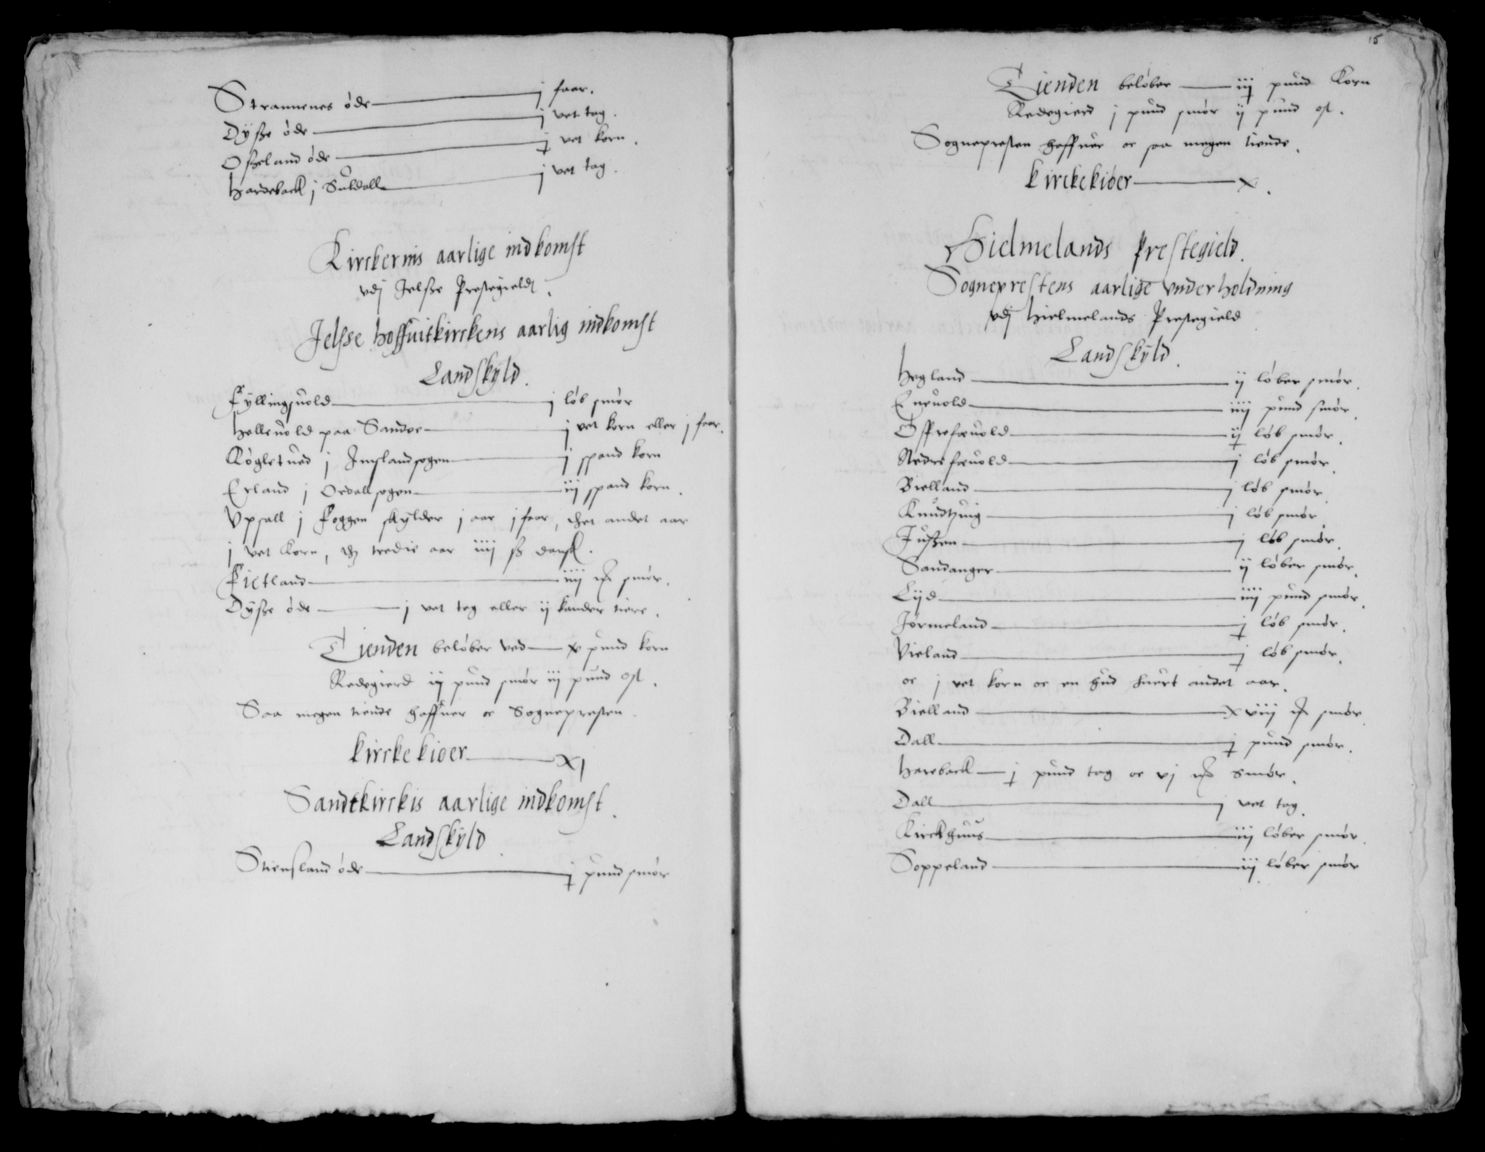 Strannenes øde j faar.
Dysse øde j vet tag.
Osseland øde j vet korn.
Hardeback j Suldall j vet tag.
Kirckernis aarlige indkomst
vdj Jelsse Prestegieldt.
Jelsse hoffuitkirckens aarlig indkomst
Landskyld.
Fyllingsuold j løb smør
Helleuold paa Sandøe j vet korn eller j faar.
Køgletued j Imslandsogen j spand korn
Erland j Ordallsogen iij spand korn.
Vpsall j Foggen skylder j aar j faar, thet andet aar
j vet Korn, th tredie aar iiij ß dansk.
Fietland iiij mk smør.
Dysse øde j vet tag eller ij kander tiere.
Tienden beløber ved x pund korn
Redegierd ij pund smør iij pund ost.
Saa megen tiende haffuer oc Sognepresten.
Kirckekiøer xj
Sandtkirckis aarlige indkomst.
Landskyld
Stiensland øde j pund smør
15
Tienden beløber iij pund Korn
Redegierd j pund smør ij pund ost.
Sognepresten haffuer oc saa megen tiende.
Kirckekiøer x.
Hielmelands Prestegield.
Sogneprestens aarlige vnderholdning
vdj Hielmelands Prestegield
Landskyld.
Hegland ij løber smør.
Eneuold iiij pund smør.
Offrefæuold ij løb smør.
Nedrefæuold j løb smør.
Bielland j løb smør.
Knudtzuig j løb smør.
Jussen j løb smør.
Sandanger ij løber smør.
Lijd iiij pund smør.
Jørmeland j løb smør.
Vieland j løb smør.
oc j vet korn oc en hud huert andet aar.
Bielland xviij mk smør.
Dall j pund smør.
Hareback j pund tag oc vj mk smør.
Dall j vet tag.
Kirckhuus iij løber smør.
Soppeland iij løber smør